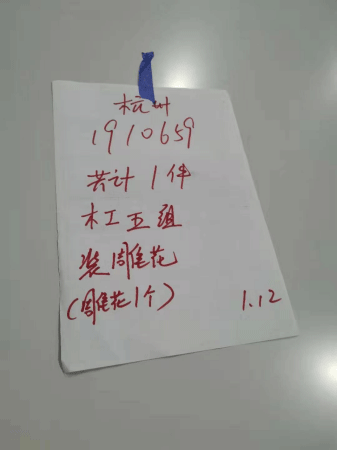 杭州
1910659
共计1件
木工五组
装雕花
(雕花1个) 1.12